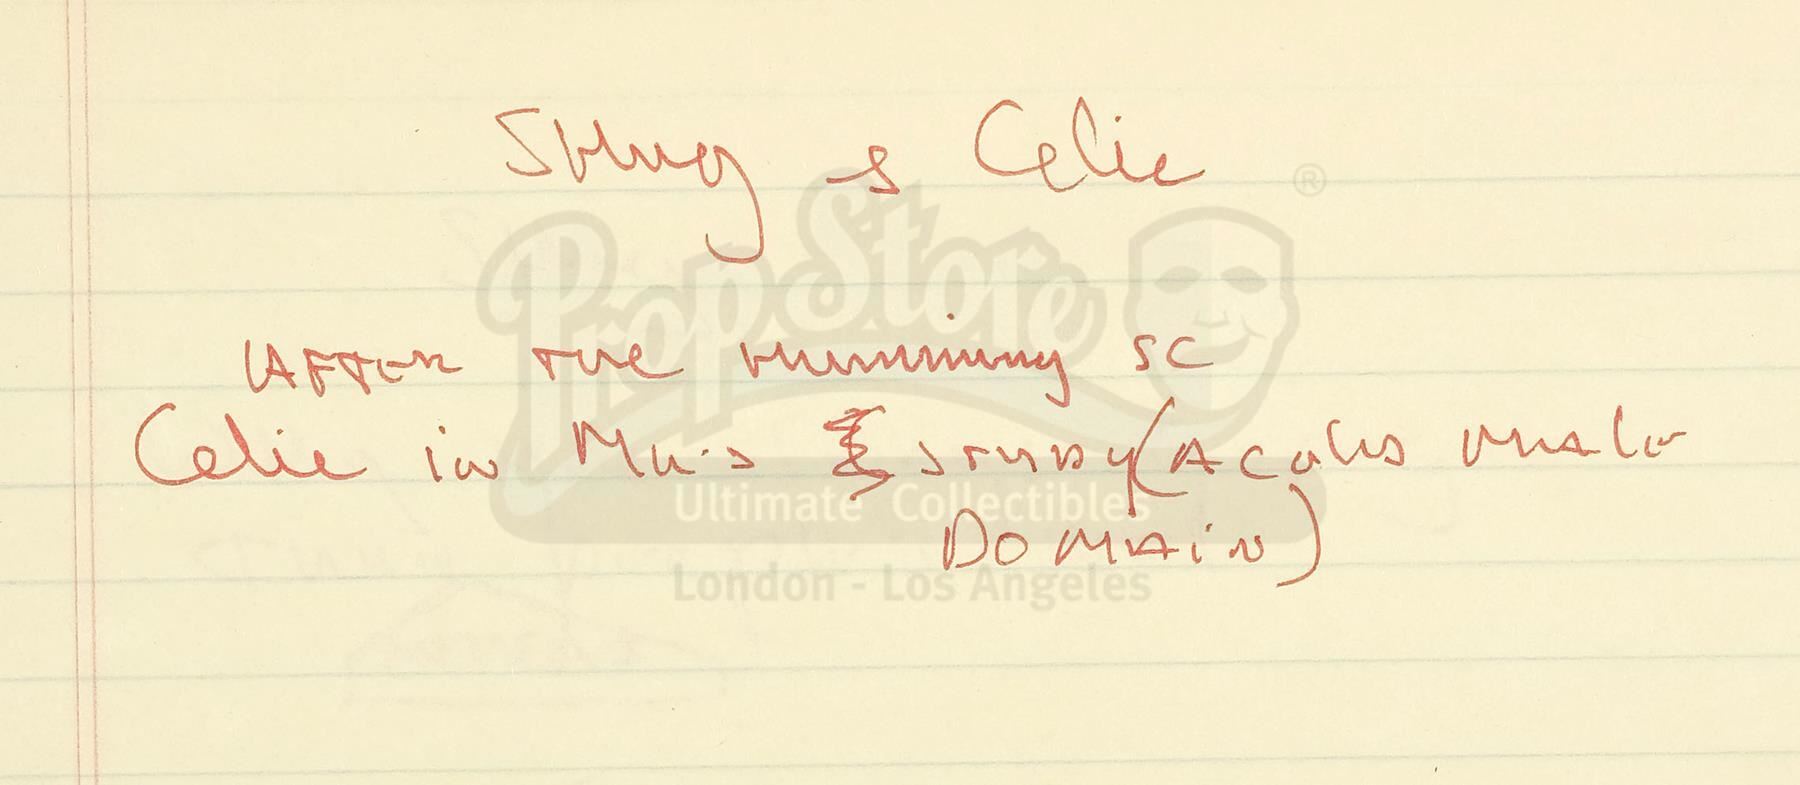 SHug & Celie
PropStore ®
AFTER THE Humming SC
Celie in MR.'s STUDY (A MALE
Ultimate Collectibles
DOMAIN)
London - Los Angeles